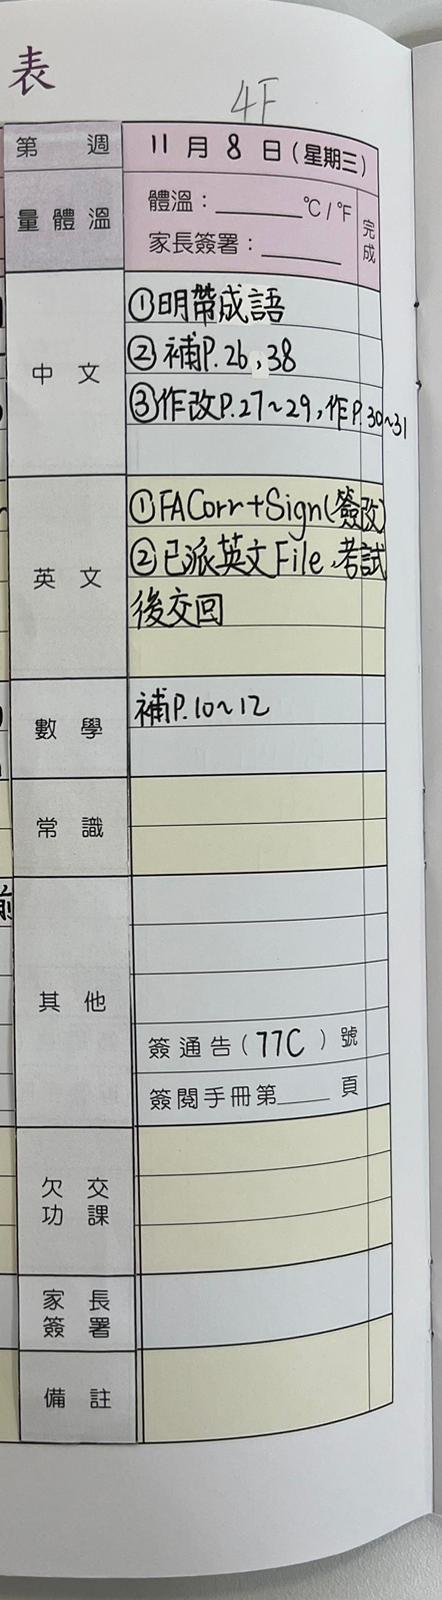 表
4F
第 週 11月8日(星期三)
量體溫 體溫：______℃/℉ 完成
家長簽署：______
中文 ①明帶成語
②補P.26、38
③作改P.27~29，作P.30~31
英文 ①FACorr+Sign(簽改)
②已派英文File、考試
後交回
數學 補P.10~12
常識
其他
前
簽通告(77C)號
簽閱手冊第____頁
欠交
功課
家長
簽署
備註